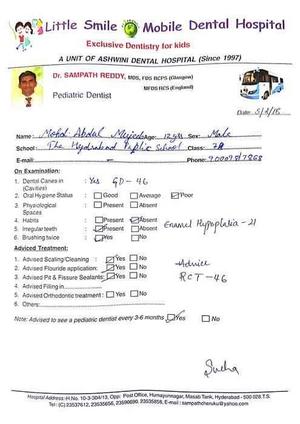 Little Smile Mobile Dental Hospital
Exclusive Dentistry for kids
A UNIT OF ASHWINI DENTAL HOSPITAL (Since 1997)
Dr. SAMPATH REDDY, MDS, FDS RCPS (Glasgow)
MFDS RCS (England)
Pediatric Dentist
Date: 5/2/15
Name: Mohd Abdul Mujeeb Age: 12 yrs Sex: Male
School: The Hydrabad Public School Class:
E-mail: Phone:
On Examination:
1. Dental Caries in (Cavities) : Yes GD-46
2. Oral Hygiene Status : Good Average Poor
3. Physiological Spaces : Present Absent
4. Habits : Present Absent
5. Irregular teeth : Present Absent
6. Brushing twice : Yes No
Enamel Hypoplasia - 21
Adviced Treatment:
1. Advised Scaling/Cleaning : Yes No
2. Advised Flouride application: Yes No
3. Advised Pit & Fissure Sealants: Yes No
4. Advised Filling in
5. Advised Orthodontic treatment : Yes No
6. Any Others:
Advice
RCT-46
Note: Advised to see a pediatric dentist every 3-6 months Yes No
Hospital Address: H.No. 10-3-304/13, Opp: Post Office, Humayunnagar, Masab Tank, Hyderabad - 500 028.T.S.
Tel: (C) 23537612, 23535656, 23590690, 23535858, E-mail : sampathcheruku@yahoo.com